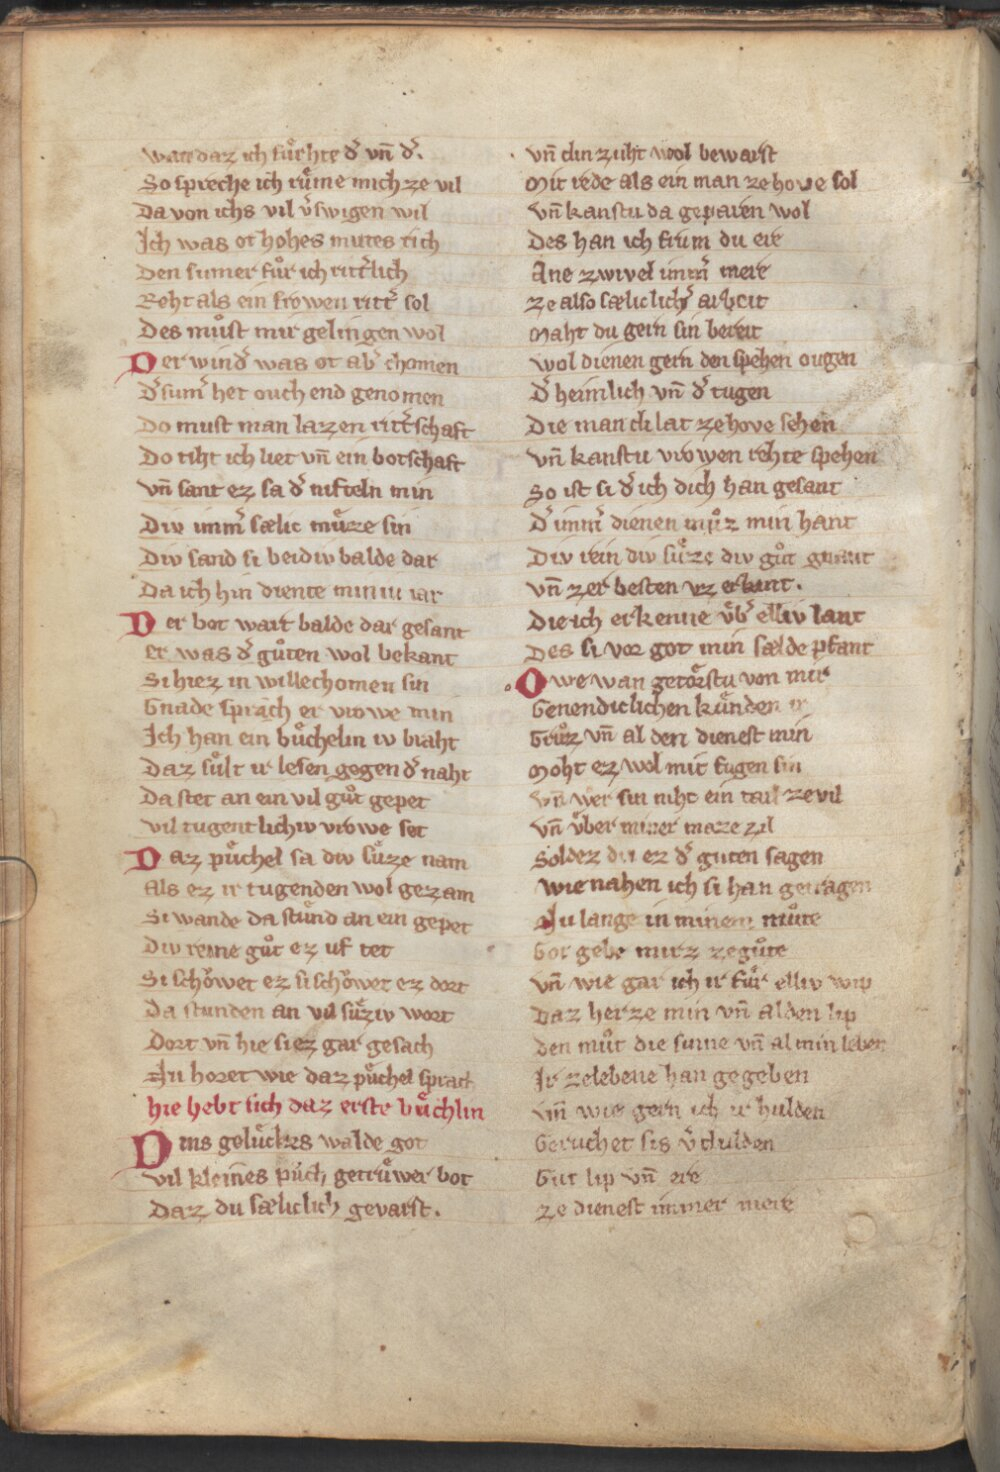 wan daz ich fuͤrhte d͛ vn̄ d͛.
So spreche ich ruͤme mich ze vil
Da von ichs vil v͛swigen wil
Ich was ot hohes mutes rich
Den sumer fuͦr ich ritt͛lich
Reht als ein frowen ritt͛ sol
Des muͦst mir gelingen wol
Der wind͛ was ot ab͛ chomen
D͛ sum͛ het ouch end genomen
Do must man lazen ritt͛schaft
Do tiht ich liet vn̄ ein botschaft
Vn̄ sant ez sa d͛ nifteln min
Div imm͛ sælic muͤze sin
Div sand si beidiv balde dar
Da ich hin diente miniu iar
Der bot wart balde dar gesant
er was d͛ guͦten wol bekant
Si hiez in willechomen sin
Gnade sprach er vrowe min
Ich han ein buͤchelin iv braht
Daz suͤlt ir lesen gegen d͛ naht
Da stet an ein vil guͦt gepet
Vil tugentlichiv vrowe set
Daz puͤchel sa div suͤze nam
Als ez ir tugenden wol gezam
Si wande da stuͤnd an ein gepet
Div reine guͦt ez uf tet
Si schowet ez si schowet ez dort
Da stunden an vil suͤziv wort
Dort vn̄ hie si ez gar gesach
Nu horet wie daz puͤchel sprach
hie hebt sich daz erste buͤchlin
Dins geluͤckes walde got
Vil kleines puͦch getruͤwer bot
Daz du sæliclich gevarst.
Vn̄ din zuht wol bewarst
Mit rede als ein man ze hove sol
Vn̄ kanstu da geparen wol
Des han ich frum du ere
Ane zwivel imm͛ mere
ze also sæliclich͛ arbeit
Maht du gern sin bereit
Wol dienen gern den spehen ougen
D͛ heimlich vn̄ d͛ tugen
Die man di lat ze hove sehen
Vn̄ kanstu vrowen rehte spehen
So ist si d͛ ich dich han gesant
D͛ imm͛ dienen muͦz min hant
Div rein div suͤze div guͦt genant
Vn̄ zer besten vz erkant.
Die ich erkenne vͤb͛ elliv lant
Des si vor got min sælde pfant
Owe wan getoͤrstu von mir
Genendiclichen kuͤnden ir
Gruͦz vn̄ al den dienest min
Moht ez wol mit fugen sin
Vn̄ wer sin niht ein tail ze vil
Vn̄ vͤber miner maze zil
Soldez du ez d͛ guten sagen
Wie nahen ich si han getragen
Nu lange in minem muͦte
Got gebe mirz ze guͦte
Vn̄ wie gar ich ir fuͤr elliv wip
Daz herze min vn̄ al den lip
den muͦt die sinne vn̄ al min leben
Ir ze lebene han gegeben
Vn̄ wie gern ich ir hulden
Geruchet sis v͛dulden
Gut lip vn̄ ere
ze dienest immer mere